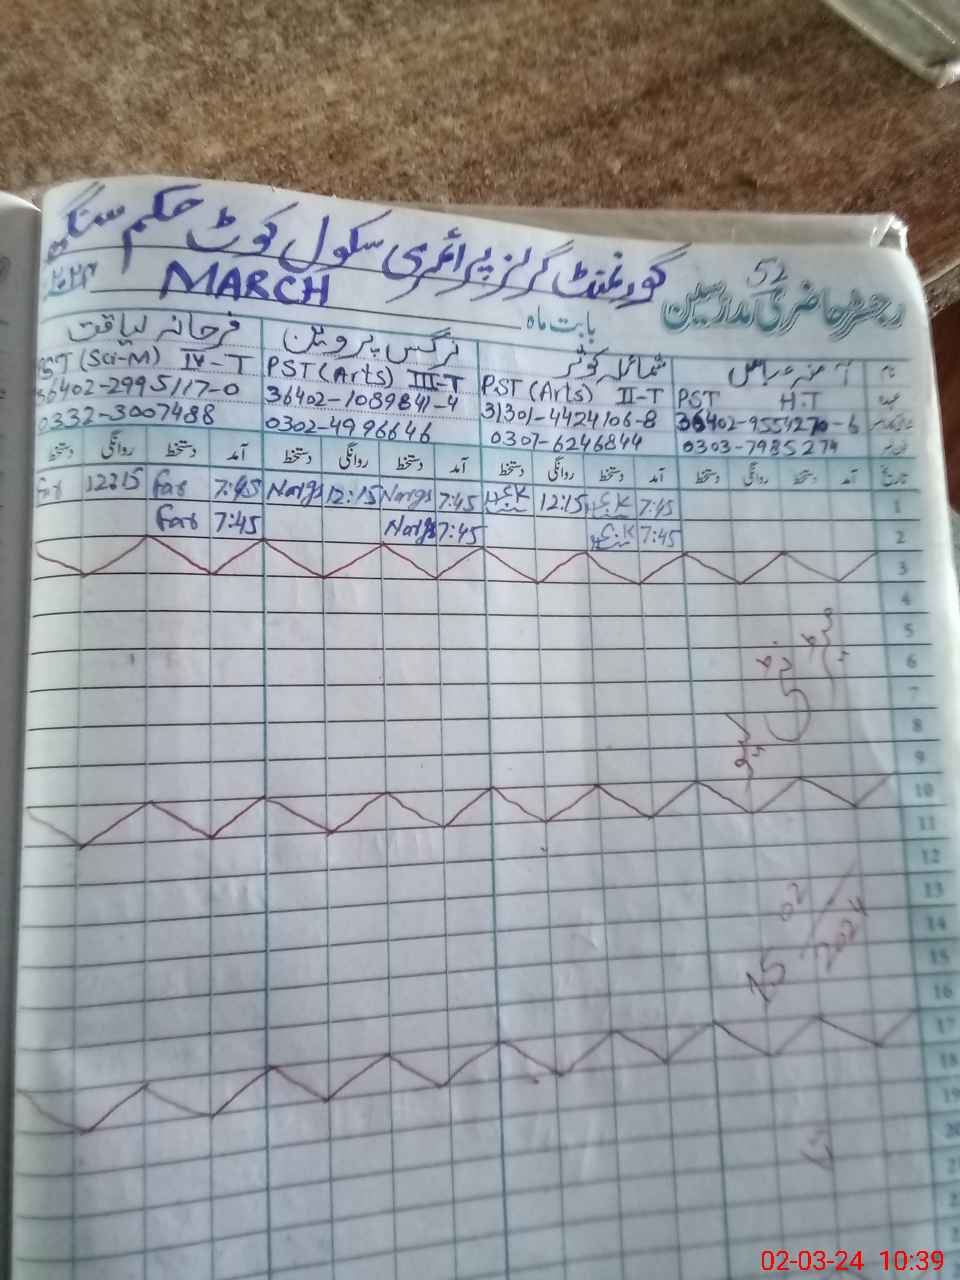 گورنمنٹ گرلز پرائمری سکول کوٹ حکم سنگھ
52
رجسٹر حاضری مدرسین
بابت ماہ
MARCH
۲۰۲۴
نام
شمائلہ کوثر
نرگس پروین
فرحانہ لیاقت
عہدہ
PST H.T
PST (Arts) II-T
PST (Arts) III-T
PST (Sci-M) IV-T
36402-9554270-6
31301-4424106-8
36402-1089841-4
36402-2995117-0
0303-7985274
0307-6246844
0302-4996646
0332-3007488
تاریخ آمد دستخط روانگی دستخط آمد دستخط روانگی دستخط آمد دستخط روانگی دستخط آمد دستخط روانگی دستخط
1 7:45 12:15 7:45 Nargs 12:15 Nargs 7:45 Far 12:15 Far
2 7:45 7:45 Nargs 7:45 Far
3
4
5
6
7
8
9
10
11
12
13
14
15
16
17
18
19
20
21
15 02/2024
02-03-24 10:39